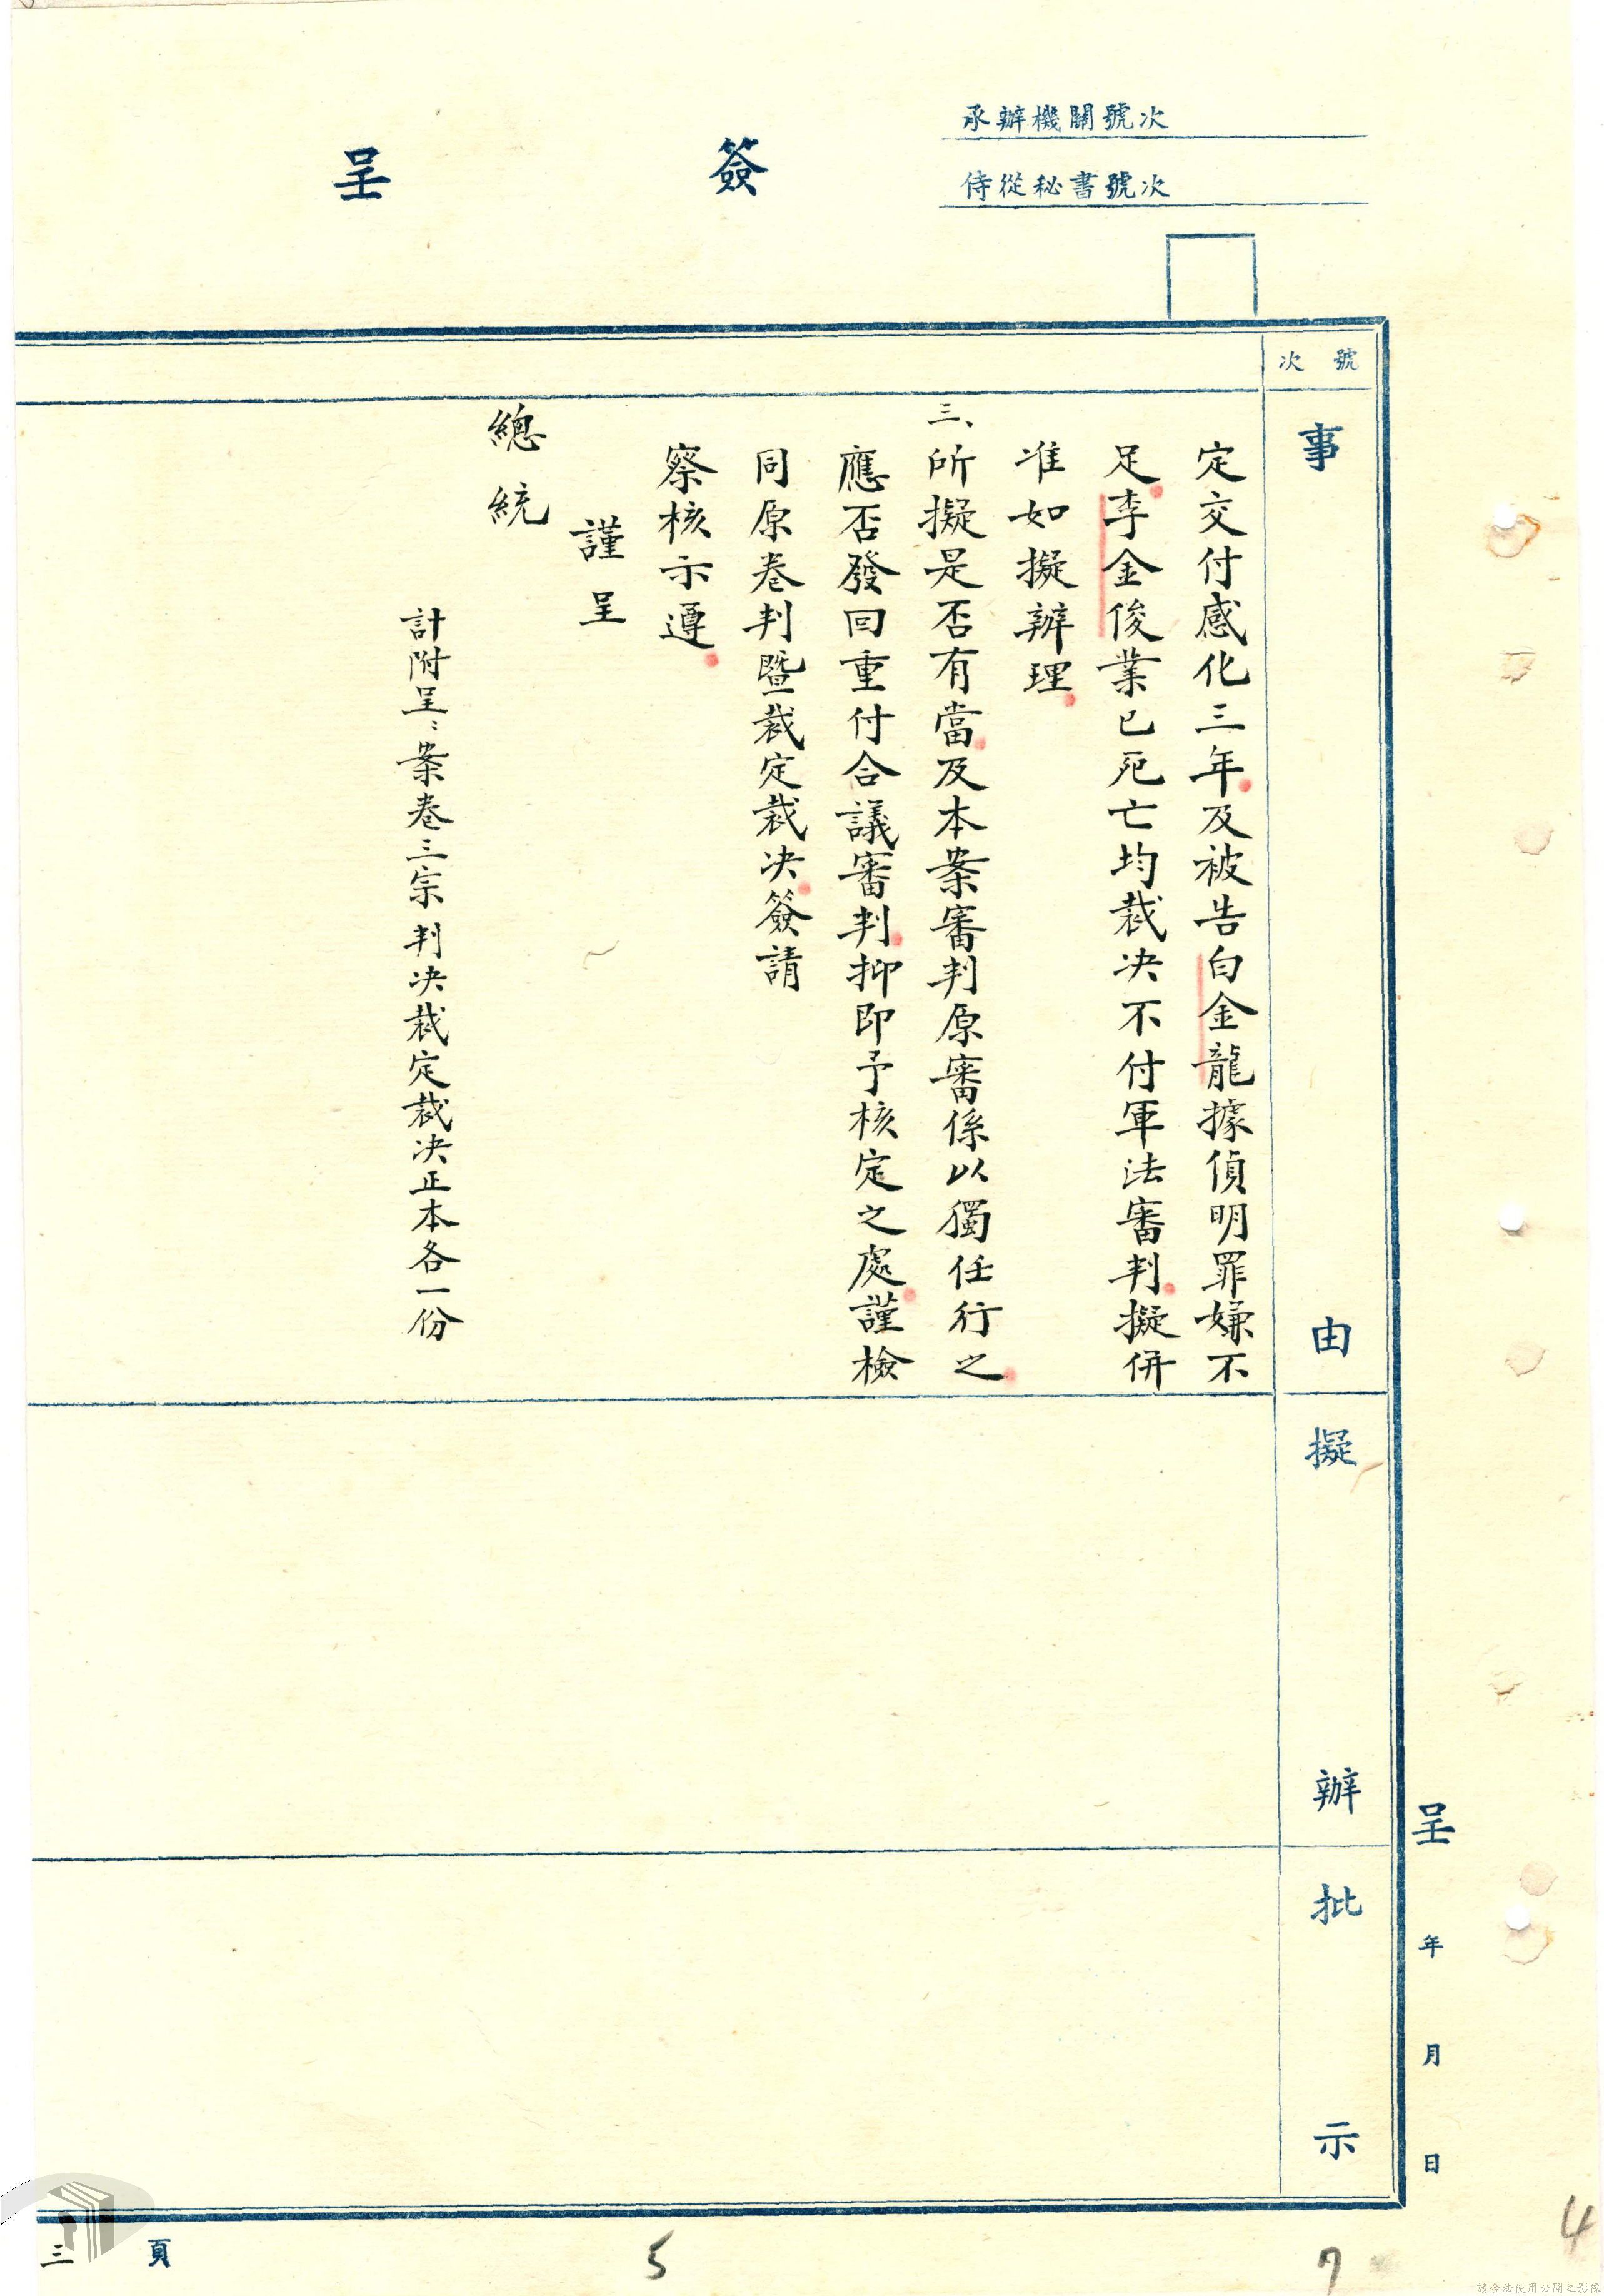 簽呈
承辦機關號次
侍從秘書號次
號次
事由
擬辦
批示
呈 年 月 日
定交付感化三年及被告白金龍據偵明罪嫌不
足李金俊業已死亡均裁決不付軍法審判擬併
准如擬辦理
三、所擬是否有當及本案審判原審係以獨任行之
應否發回重付合議審判抑即予核定之處謹檢
同原卷判暨裁定裁決簽請
察核示遵
謹呈
總統
計附呈：案卷三宗判決裁定裁決正本各一份
三頁
5
7
4
請合法使用公開之影像